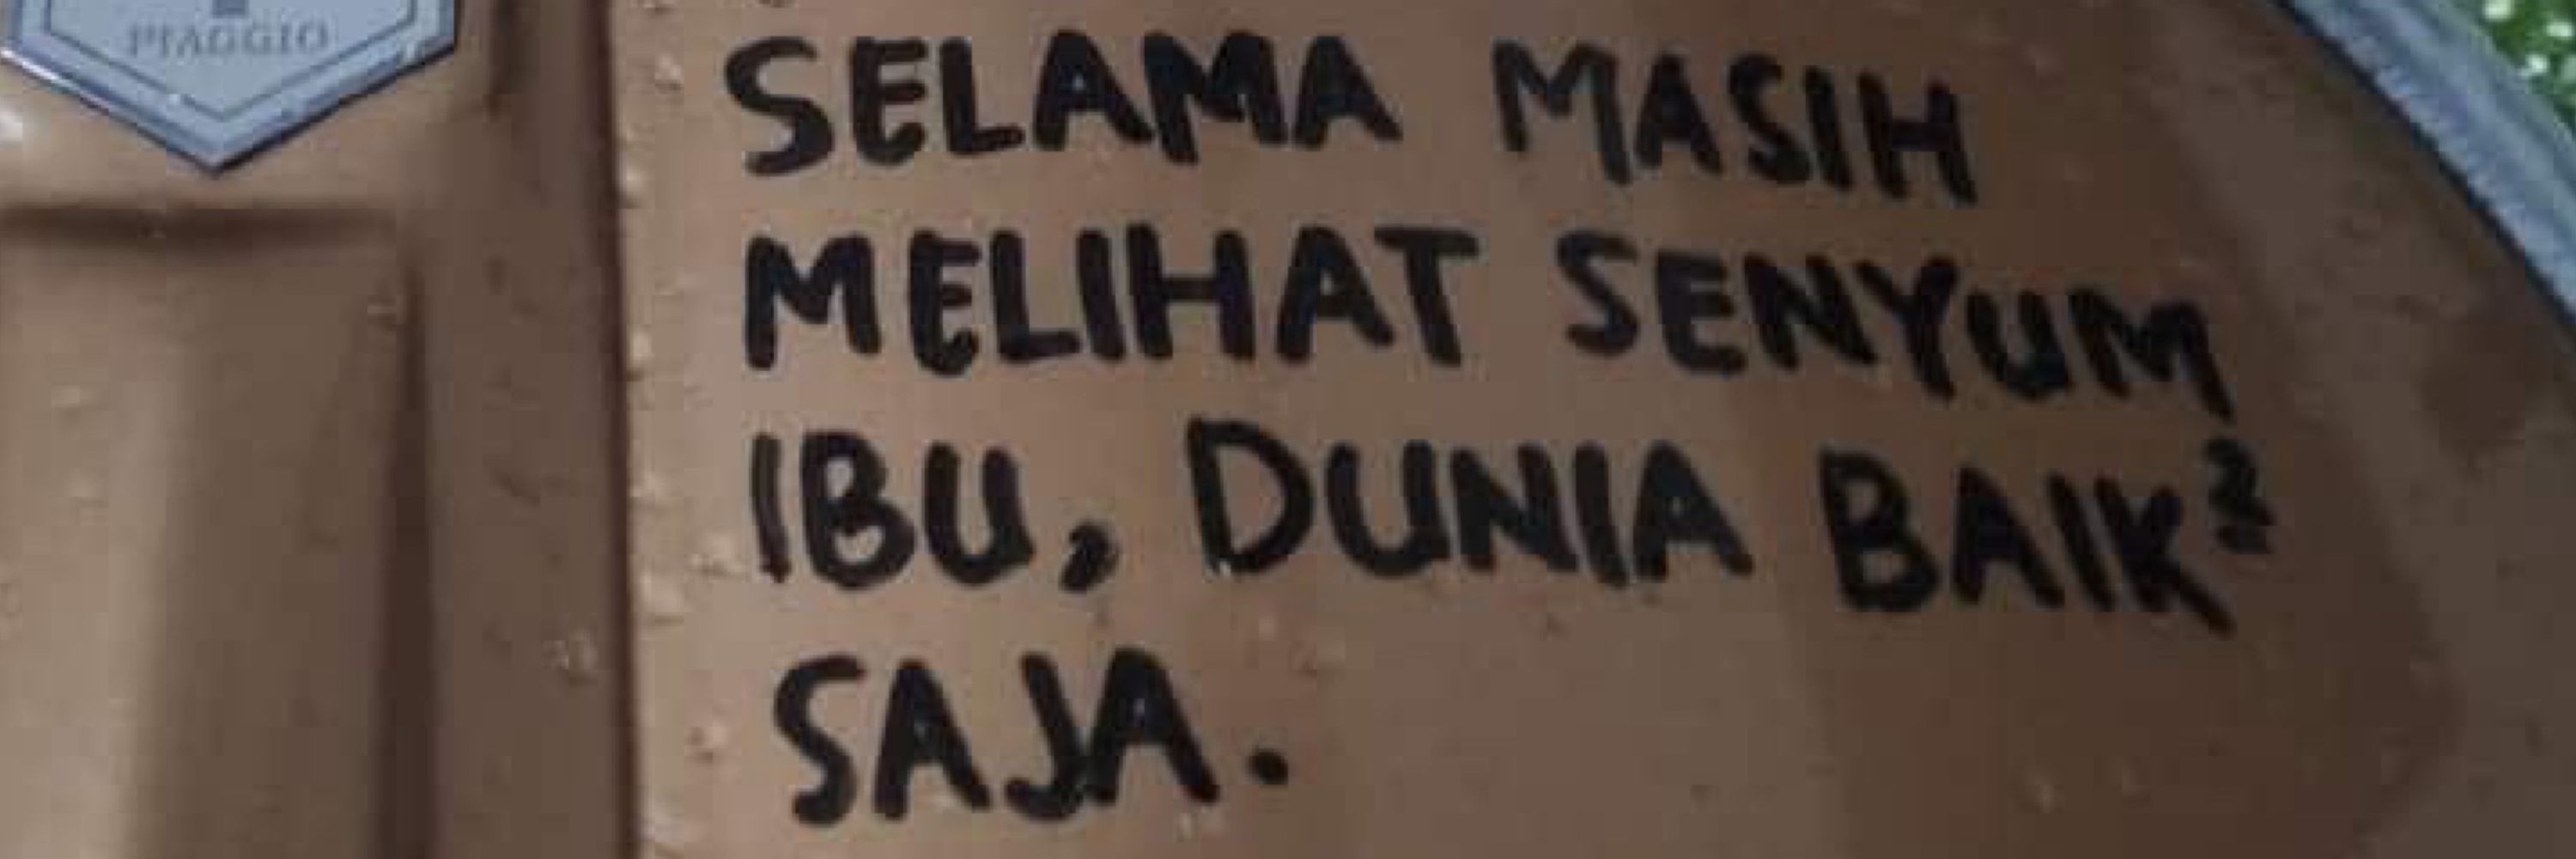 PIAGGIO
SELAMA MASIH
MELIHAT SENYUM
IBU, DUNIA BAIK²
SAJA.